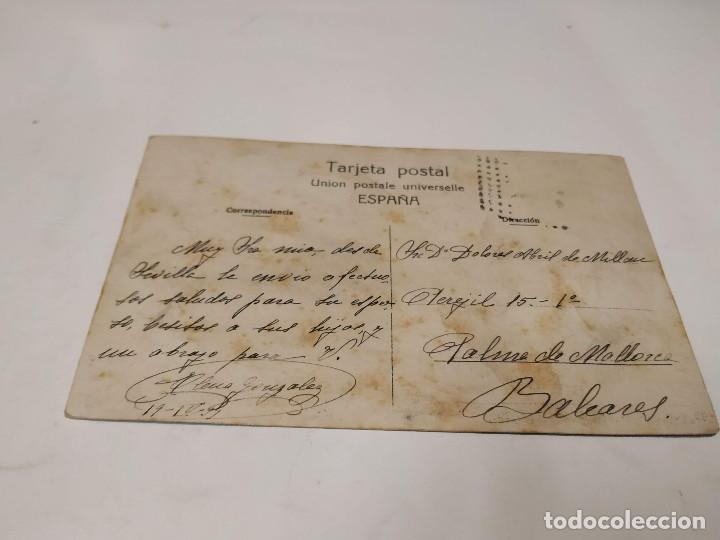 Tarjeta postal
Union postale universelle
ESPAÑA
Correspondencia
Dirección
Muy Sra mia, desde
Sevilla le envio afectuo,
sos saludos para su espo-
so, besitos a sus hijas, y
un abrazo para V.
Elena González
Sra Dª Dolores Abril de Millan
Perejil 15.- 1º
Palma de Mallorca
Baleares.
todocoleccion.net